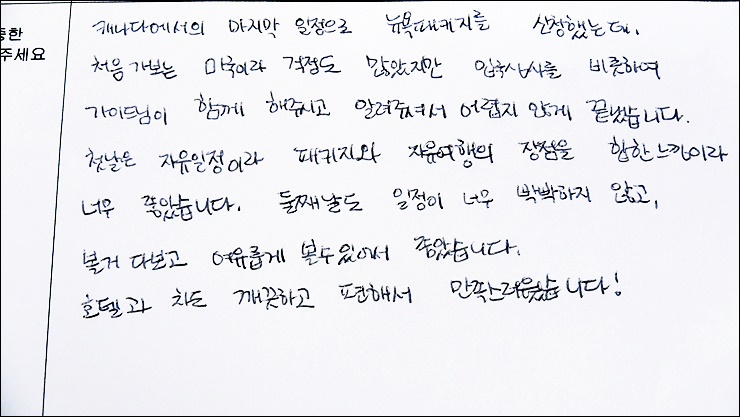 중한
주세요
캐나다에서의 마지막 일정으로 뉴욕패키지를 신청했는데,
처음 가보는 미국이라 걱정도 많았지만 입국심사를 비롯하여
가이드님이 함께 해주시고 알려주셔서 어렵지 않게 끝냈습니다.
첫날은 자유일정이라 패키지와 자유여행의 장점을 합한 느낌이라
너무 좋았습니다. 둘째날도 일정이 너무 박박하지 않고,
볼거 다보고 여유롭게 볼수있어서 좋았습니다.
호텔과 차도 깨끗하고 편해서 만족스러웠습니다!